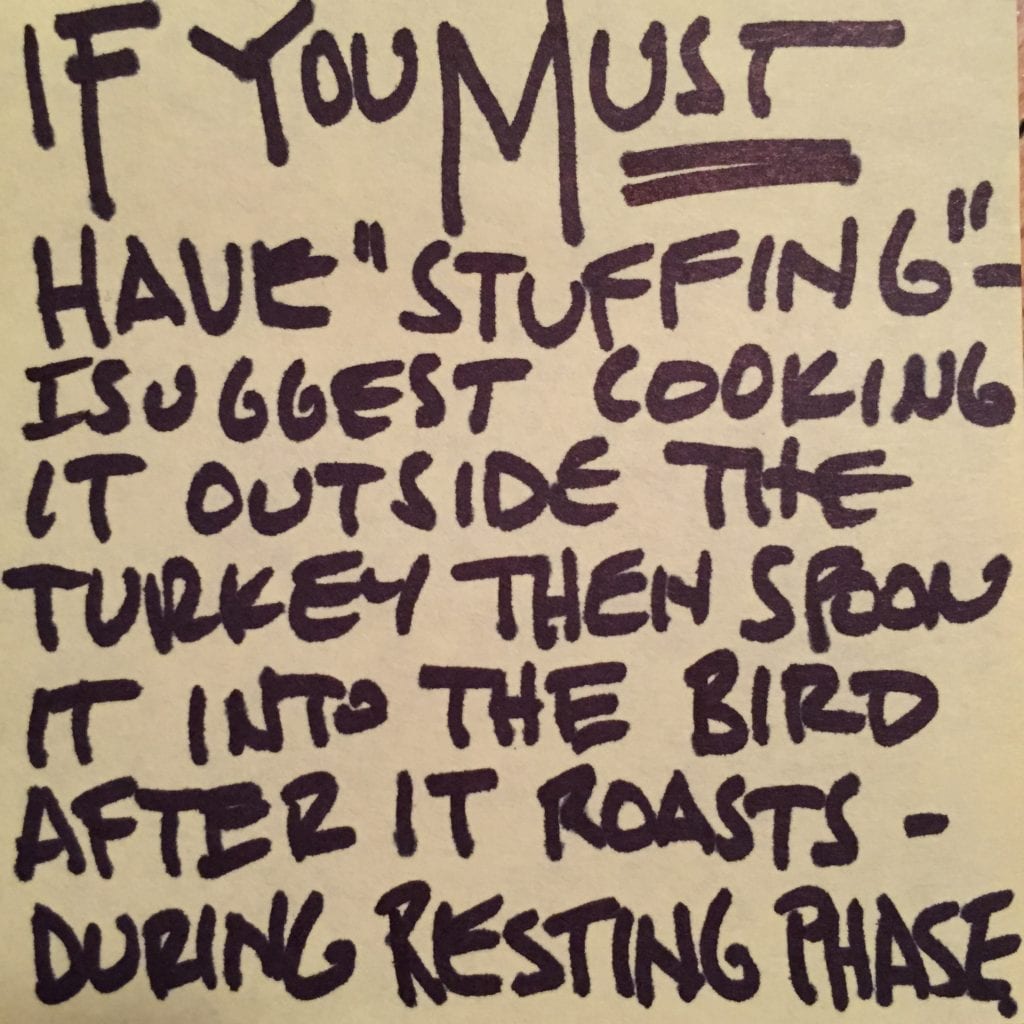 IF YOU MUST
HAVE "STUFFING" -
I SUGGEST COOKING
IT OUTSIDE THE
TURKEY THEN SPOON
IT INTO THE BIRD
AFTER IT ROASTS -
DURING RESTING PHASE.